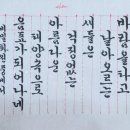 바람을타고
날아오르는
새들은
걱정없이
아름다운
태양속으로
음표가되어나네